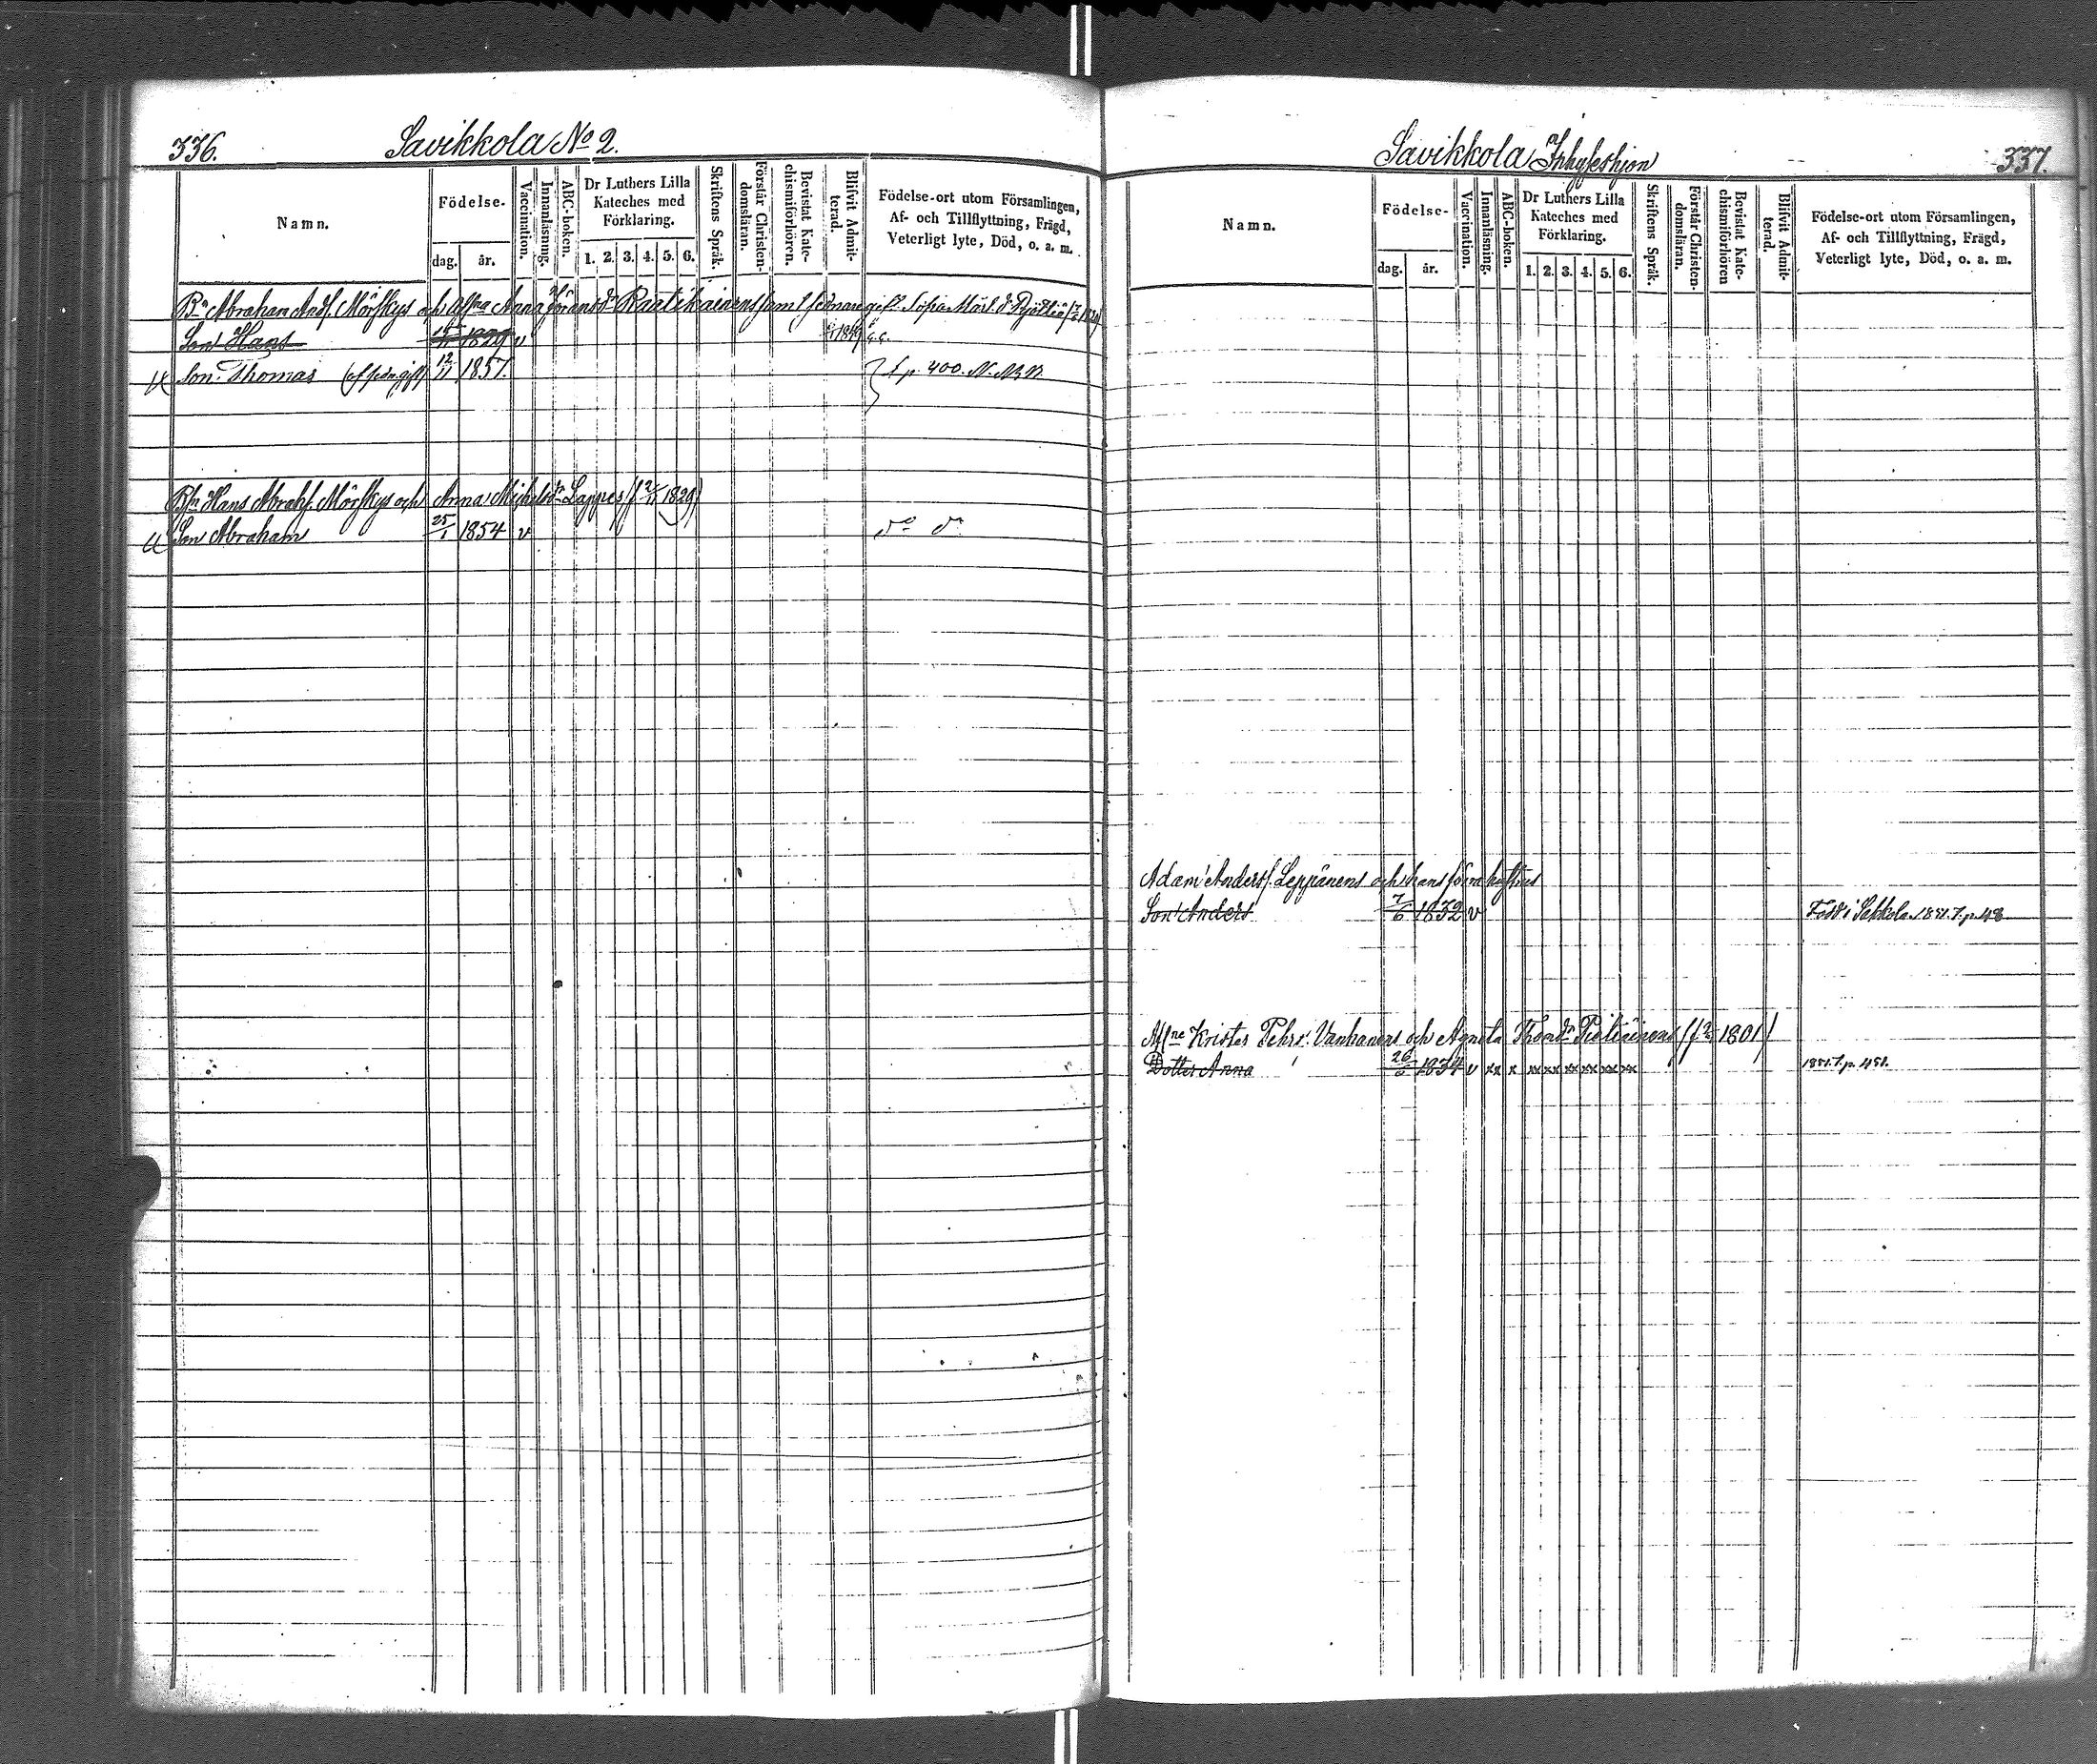 336.
Savikkola No 2.
Namn.
Födelse.
dag.
år.
Vaccination.
Innanläsning.
ABC-boken.
Dr Luthers Lilla
Kateches med
Förklaring.
1. 2. 3. 4. 5. 6.
Skriftens Språk.
Förstår Christen-
domsläran.
Bevistat Kate-
chismiförhören.
Blifvit Admit-
terad.
Födelse-ort utom Församlingen,
Af- och Tillflyttning, Frägd,
Veterligt lyte, Död, o. a. m.
Bn Abraham Andf. Mörskys och Anna Göransdr Raatikainens samt sednare gift Sofia
Son Hans 1829 v 1849
Son Thomas 12/11 1857. p. 400.
Hans Abrahf. Mörskys och Anna Michelsdr Lappes (f 2/11 1829)
Son Abraham 25/1 1854 v do do
Savikkola Inhyseshjon
337.
Namn.
Födelse-
dag.
år.
Vaccination.
Innanläsning.
ABC-boken.
Dr Luthers Lilla
Kateches med
Förklaring.
1. 2. 3. 4. 5. 6.
Skriftens Språk.
Förstår Christen-
domsläran.
Bevistat Kate-
chismiförhören
Blifvit Admit-
terad.
Födelse-ort utom Församlingen,
Af- och Tillflyttning, Frägd,
Veterligt lyte, Död, o. a. m.
Adam Andersf. Leppänens och hans förra hustrus
Son Anders 7/6 1832 v Född i Sakkola 1851. T. p. 48
Krister Pehrs. Vanhanens och Agneta Thomdr 1801)
Dotter Anna 26/6 1834 v xx x xx xx xx xx xx xx 1851. T. p. 451.